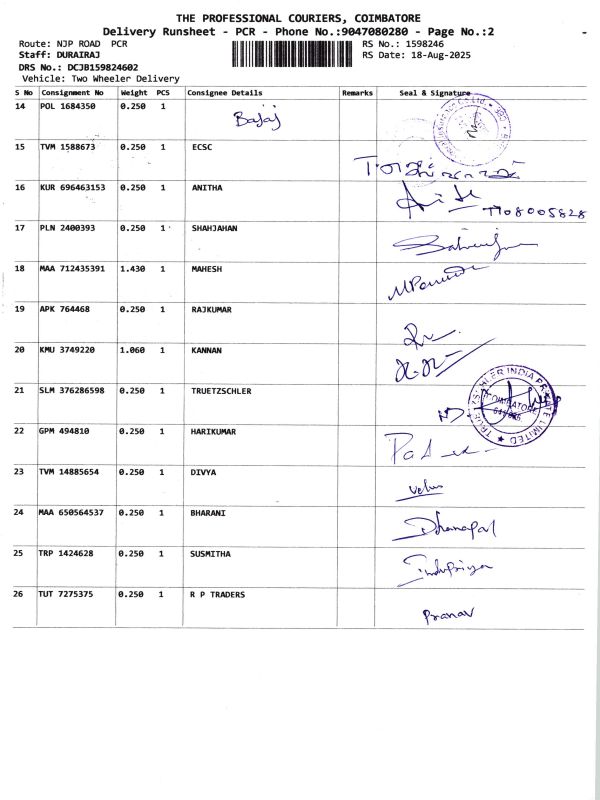 THE PROFESSIONAL COURIERS, COIMBATORE
Delivery Runsheet - PCR - Phone No.:9047080280 - Page No.:2
Route: NJP ROAD PCR RS No.: 1598246
Staff: DURAIRAJ RS Date: 18-Aug-2025
DRS No.: DCJB159824602
Vehicle: Two Wheeler Delivery
S No Consignment No Weight PCS Consignee Details Remarks Seal & Signature
14 POL 1684350 0.250 1 Bajaj
15 TVM 1588673 0.250 1 ECSC
16 KUR 696463153 0.250 1 ANITHA
17 PLN 2400393 0.250 1 SHAHJAHAN
18 MAA 712435391 1.430 1 MAHESH
19 APK 764468 0.250 1 RAJKUMAR
20 KMU 3749220 1.060 1 KANNAN
21 SLM 376286598 0.250 1 TRUETZSCHLER TRUETZSCHLER INDIA PRIVATE LIMITED ★ COIMBATORE
22 GPM 494810 0.250 1 HARIKUMAR
23 TVM 14885654 0.250 1 DIVYA
24 MAA 650564537 0.250 1 BHARANI Dhanapal
25 TRP 1424628 0.250 1 SUSMITHA Indupriya
26 TUT 7275375 0.250 1 R P TRADERS Pranav